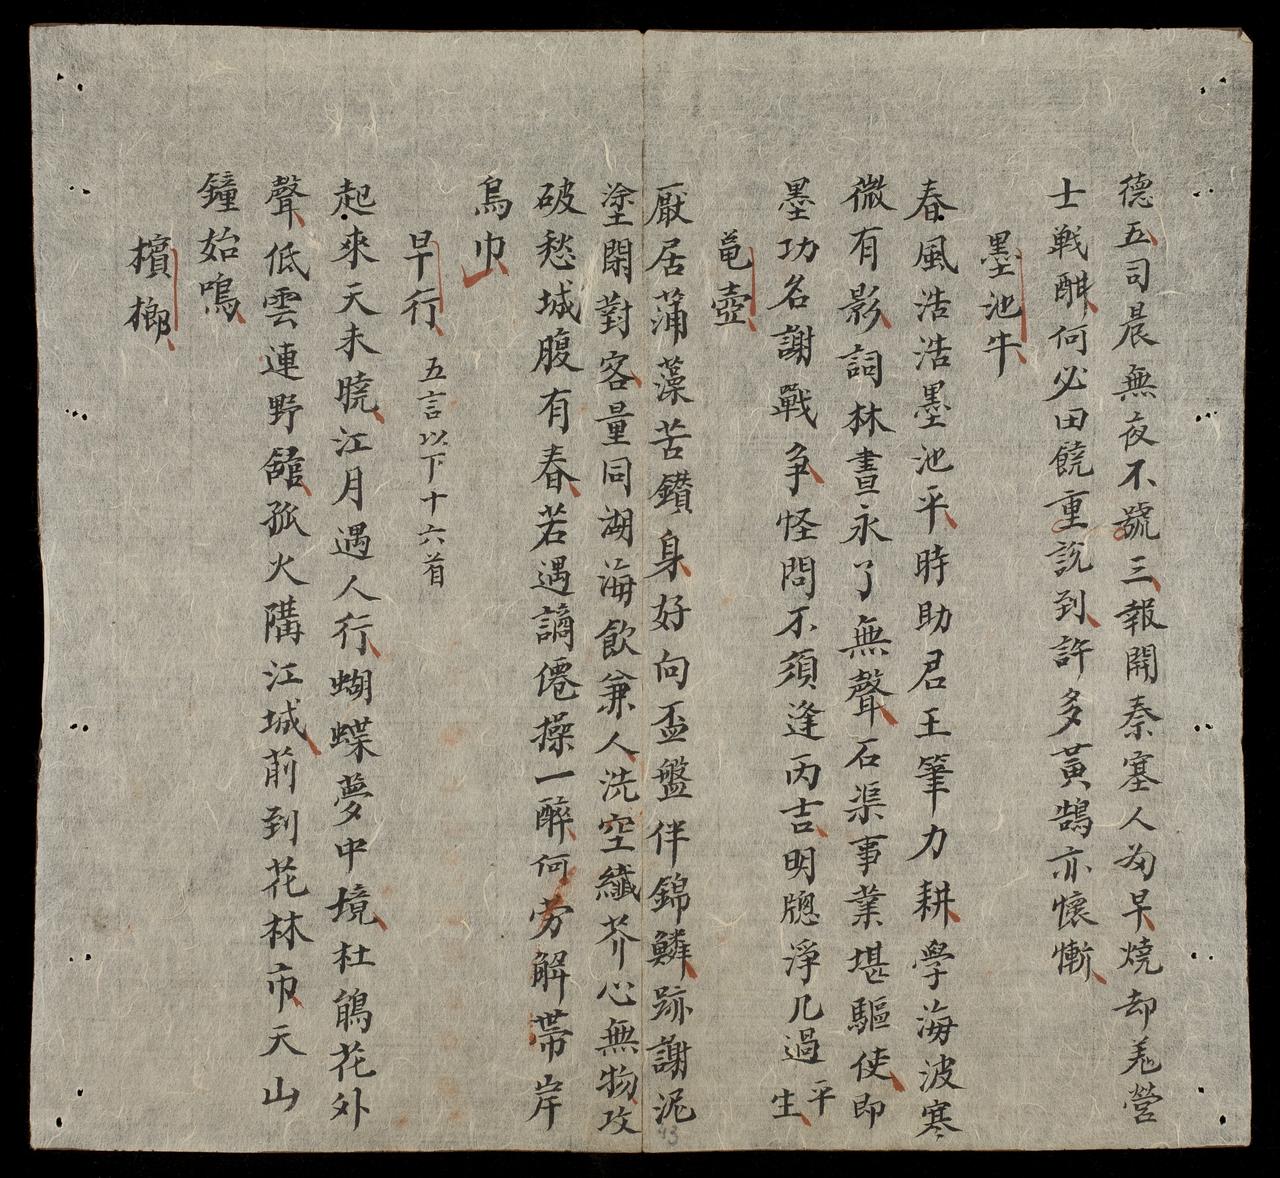 德五司晨無夜不號三報開秦塞人為早燒却羌營
士戦酣何必田饒重說到許多黃鵠亦懷慚
墨池牛
春風浩浩墨池平時助君王筆力耕學海波寒
微有影詞林晝永了無聲石渠事業堪驅使即
墨功名謝戰争怪問不須逢丙吉明牕淨几過平生
黽壺
厭居蒲藻苦鑽身好向盃盤伴錦鱗跡謝泥
塗閑對客量同湖海飲兼人洗空纖芥心無物攻
破愁城腹有春若遇謫僊操一醉何勞解帶岸
烏巾
早行 五言以下十六首
起來天未曉江月遇人行蝴蝶夢中境杜鵑花外
聲低雲連野館孤火隣江城前到花林市天山
鐘始鳴
檳榔
43